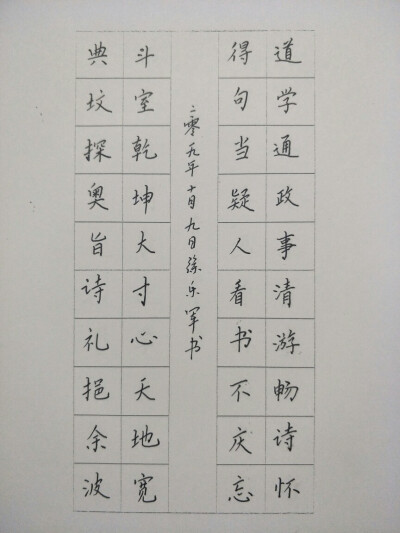 道学通政事清游畅诗怀
得句当疑人看书不庆忘
二零一九年十月九日徐乐军书
斗室乾坤大寸心天地宽
典坟探奥旨诗礼挹余波